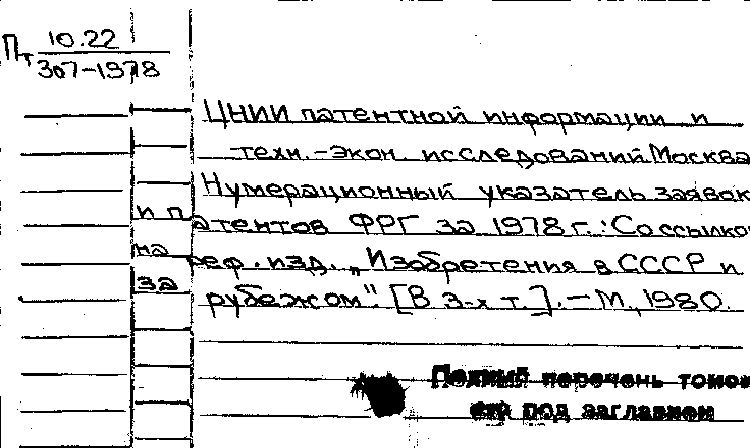 Пт 10.22
307-1978
ЦНИИ патентной информации и
техн.-экон. исследований Москва
Нумерационный указатель заявок
и патентов ФРГ за 1978 г.: Со ссылко
на реф. изд. „Изобретения в СССР и
за рубежом". [В 3-х т.]. - М., 1980.
Полный перечень томов
см под заглавием